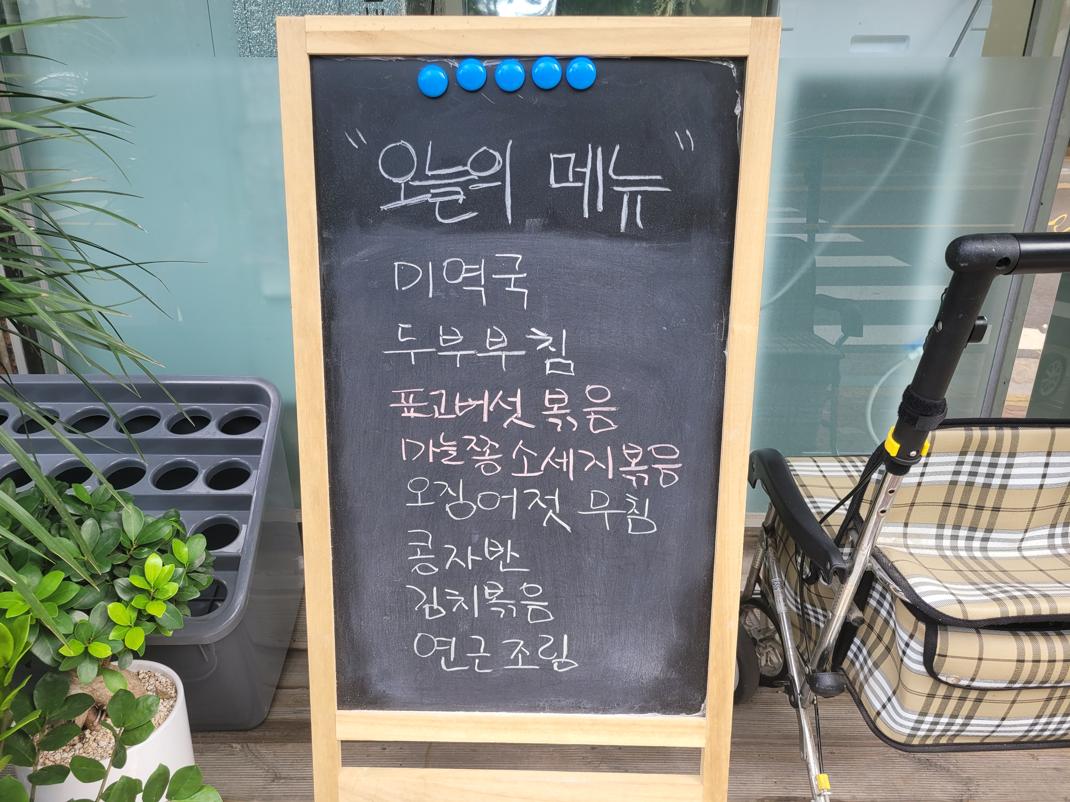 "오늘의 메뉴"
미역국
두부부침
표고버섯 볶음
마늘쫑 소세지볶음
오징어젓 무침
콩자반
김치볶음
연근조림